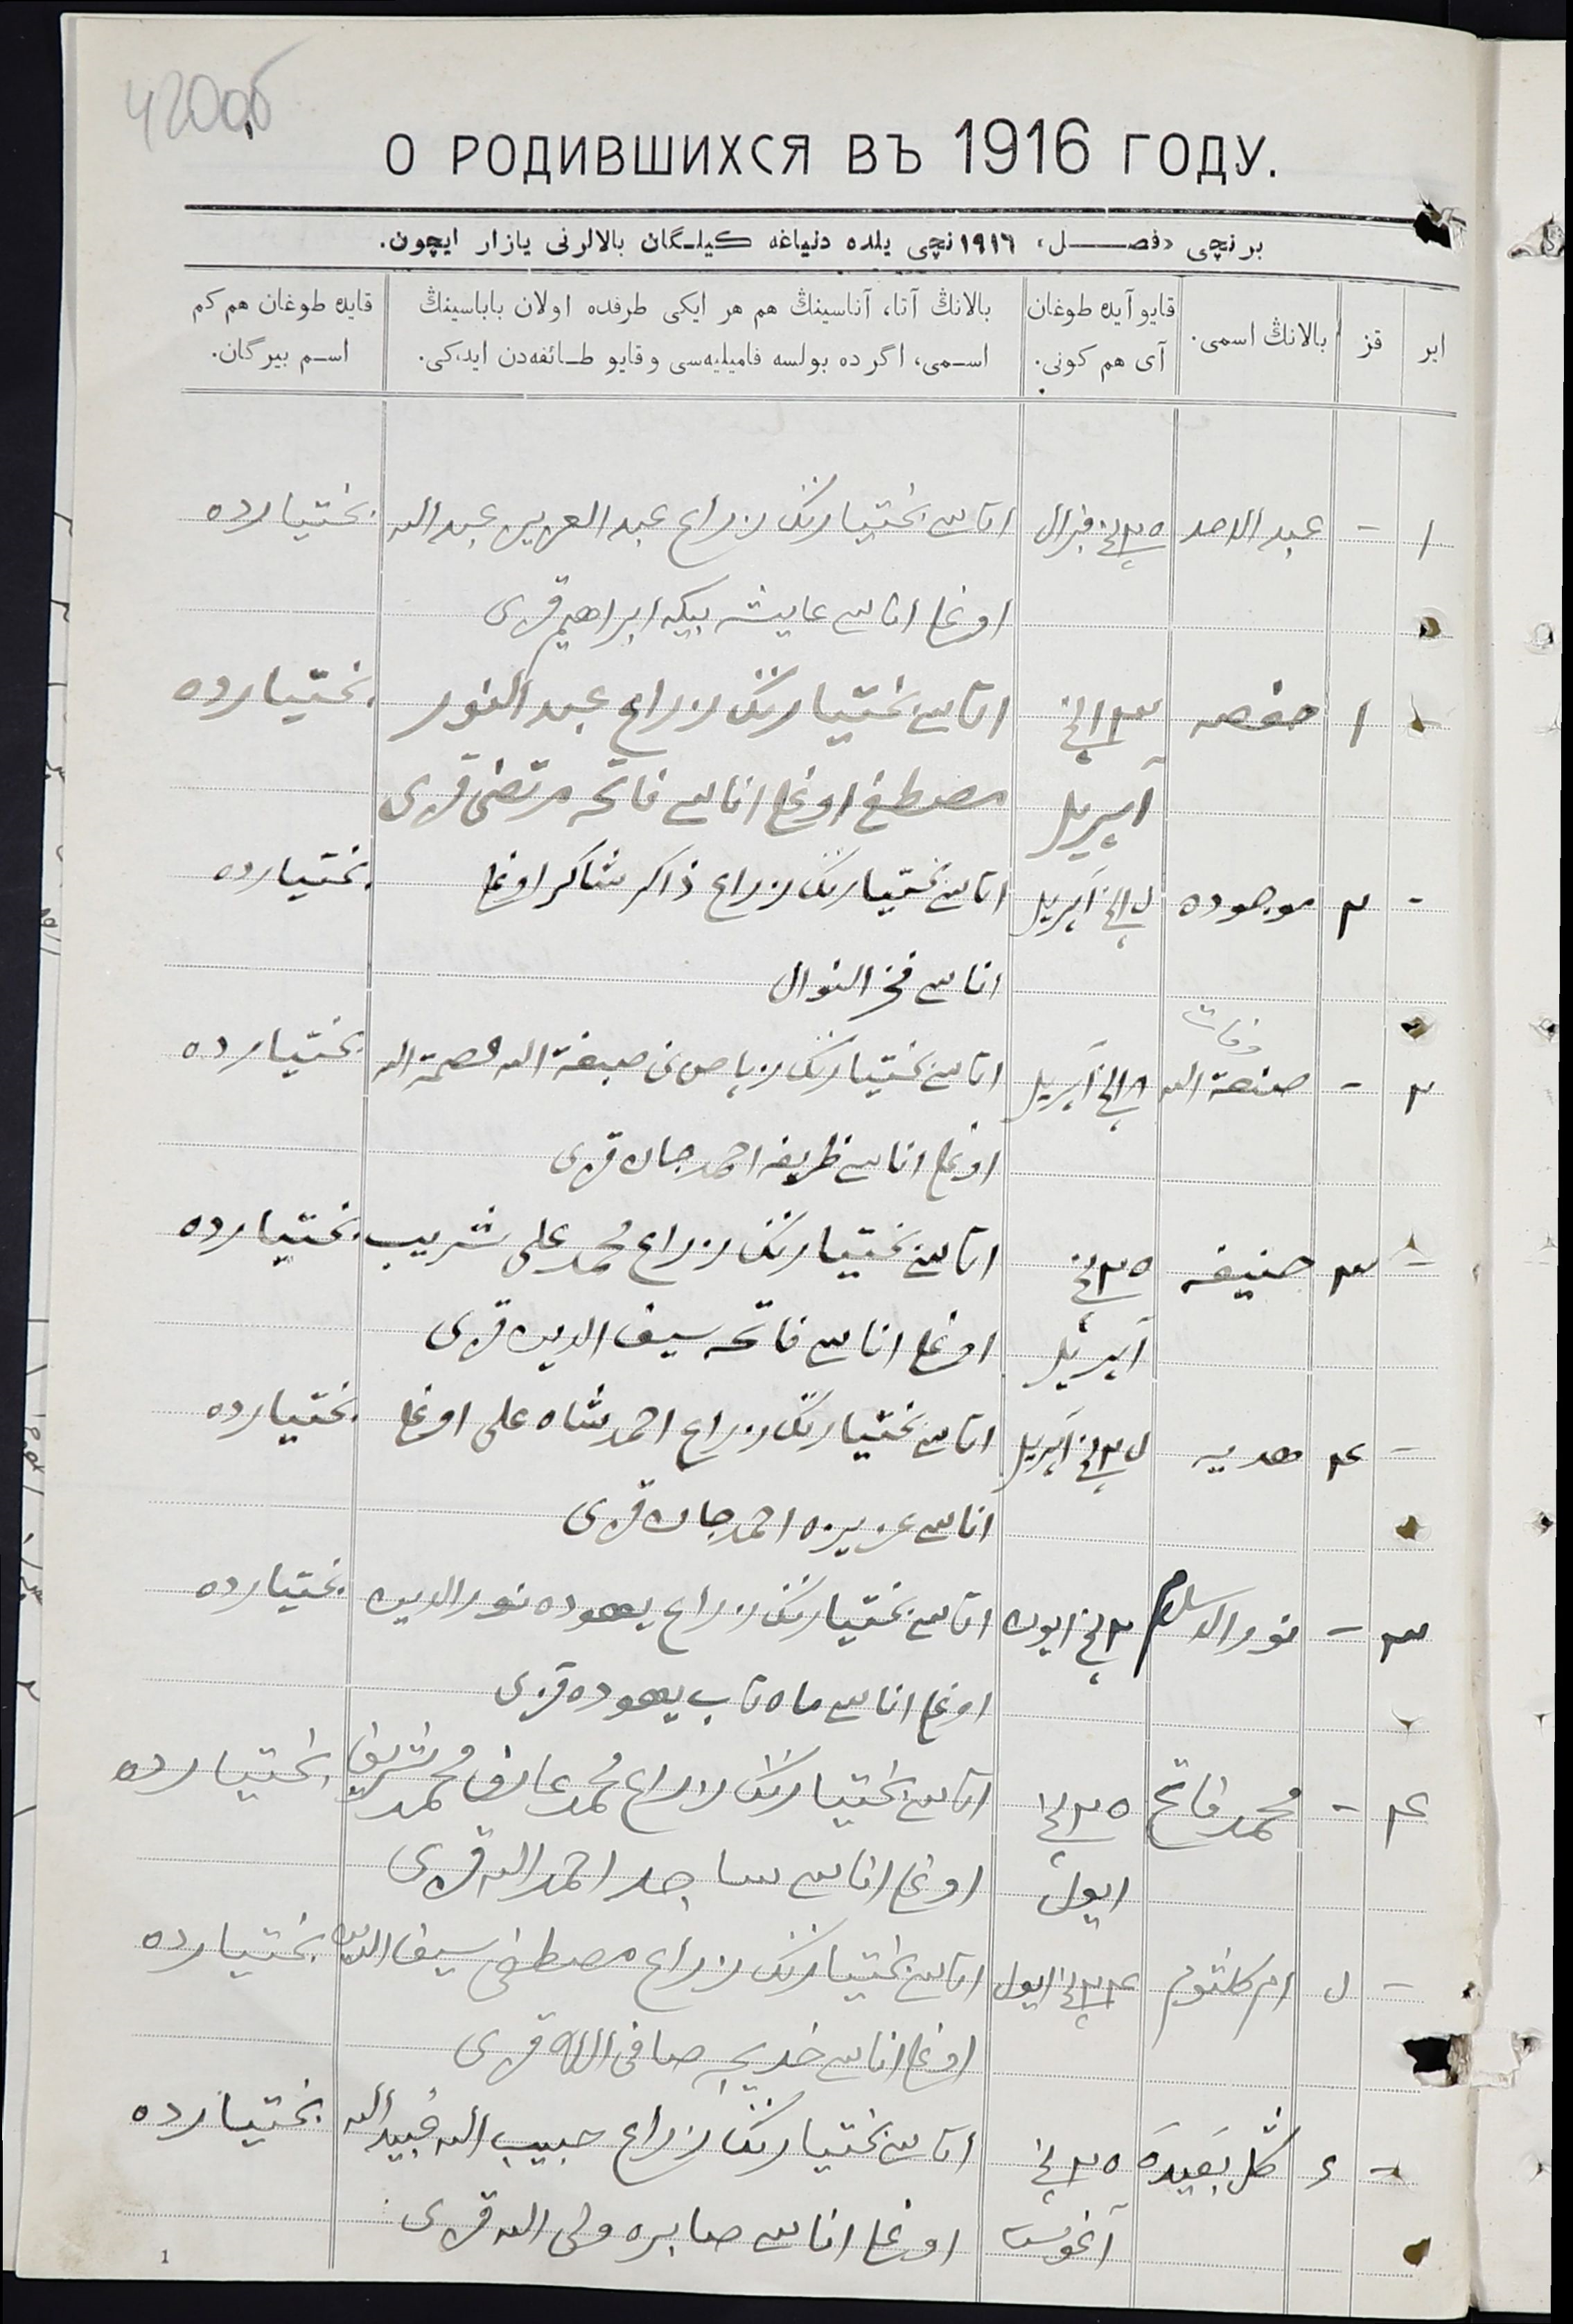 420об
О РОДИВШИХСЯ ВЪ 1916 ГОДУ.
برنچی «فصـــل» ١٩١٦نچی یلده دنیاغه کیلـگان بالالرنی یازار ایچون.
ایر قز بالانڭ اسمی. قایو آیده طوغان آی هم کونی. بالانڭ آتا، آناسینڭ هم هر ایکی طرفده اولان باباسینڭ اسـمی، اگر ده بولسه فامیلیه‌سی و قایو طـائفه‌دن ایدکی. قایده طوغان هم کم اسـم بیرگان.
١ - عبد الاحد ٢٥نچی فبرال اتاسی بختیارنڭ زراع عبد العزیز عبد الله بختیارده
اوغلی اناسی عایشه بیکه ابراهیم قزی
- ١ حفصه ١٣نچی اتاسی بختیارنڭ زراع عبد النور بختیارده
آپریل مصطفی اوغلی اناسی فاتحه مرتضی قزی
- ٢ موجوده آپریل اتاسی بختیارنڭ زراع ذاکر شاکر اوغلی بختیارده
اناسی فخر النوال
وفات
٢ - صنعة الله ١٨نچی آپریل اتاسی بختیارنڭ صبغة الله عصمة الله بختیارده
اوغلی اناسی ظریفه احمدجان قزی
- ٣ حنیفه ٢٥نچی اتاسی بختیارنڭ زراع محمد علی شریب بختیارده
آپریل اوغلی اناسی فاتحه سیف الدین قزی
- ٤ هدیه آپریل اتاسی بختیارنڭ زراع احمد شاه علی اوغلی بختیارده
اناسی عزیزه احمدجان قزی
٣ - نور الاسلام ٢نچی ایون اتاسی بختیارنڭ زراع یهوده نورالدین بختیارده
اوغلی اناسی ماه تاب یهوده قزی
٤ - محمد فاتح ٢٥نچی اتاسی بختیارنڭ زراع محمد عارف محمد شریف بختیارده
ایول اوغلی اناسی ساجد احمد الله قزی
- ٥ ام کلثوم ٢٤نچی ایول اتاسی بختیارنڭ زراع مصطفی سیف الدین بختیارده
اوغلی اناسی خدیجه صافی الله قزی
- ٦ گل بعیده ٢٥نچی اتاسی بختیارنڭ زراع حبیب الله عبید الله بختیارده
آغوست اوغلی اناسی صابره ولی الله قزی
1